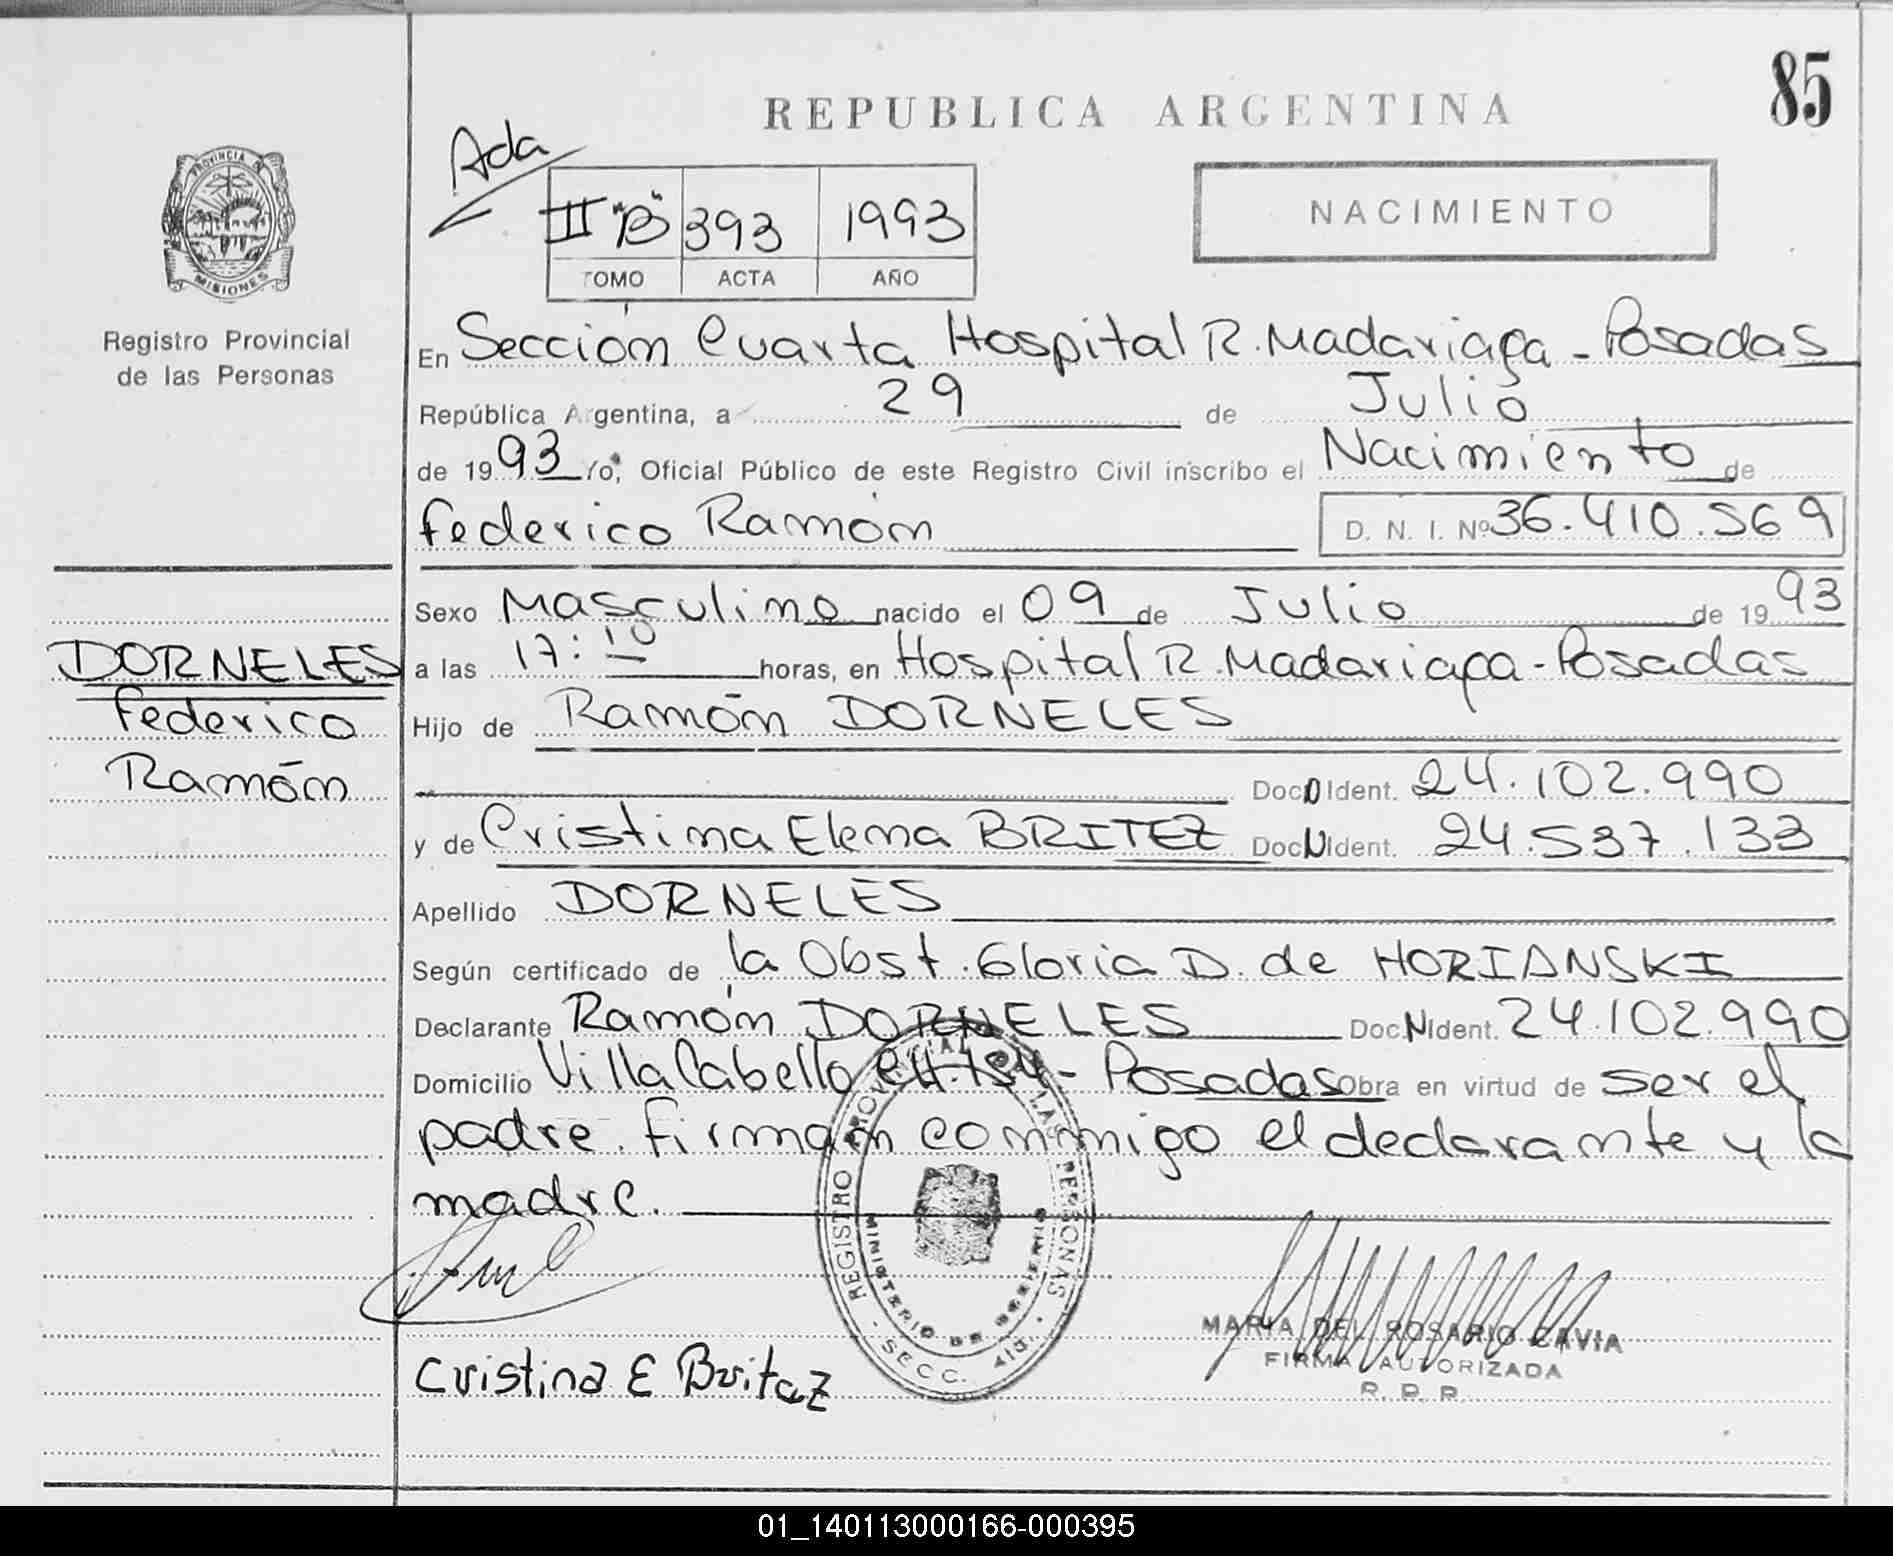 85
REPUBLICA ARGENTINA
Ada
II "B" 393 1993
TOMO ACTA AÑO
NACIMIENTO
PROVINCIA DE
MISIONES
Registro Provincial
de las Personas
En Sección Cuarta Hospital R. Madariaga - Posadas
República Argentina, a 29 de Julio
de 1993 Yo, Oficial Público de este Registro Civil inscribo el Nacimiento de
Federico Ramón D. N. I. Nº 36.410.569
Sexo Masculino nacido el 09 de Julio de 1993
DORNELES
Federico
Ramón
a las 17:10 horas, en Hospital R. Madariaga - Posadas
Hijo de Ramón DORNELES
Doc. Ident. 24.102.990
y de Cristina Elena BRITEZ Doc N Ident. 24.537.133
Apellido DORNELES
Según certificado de la Obst. Gloria D. de HORIANSKI
Declarante Ramón DORNELES Doc N Ident. 24.102.990
Domicilio Villa Cabello CH.154 - Posadas Obra en virtud de ser el
padre. Firman conmigo el declarante y la
madre.
REGISTRO PROVINCIAL DE LAS PERSONAS
MINISTERIO DE GOBIERNO
SECC. 4ta.
Cristina E Britez
MARIA DEL ROSARIO CAVIA
FIRMA AUTORIZADA
R. P. P.
01_140113000166-000395